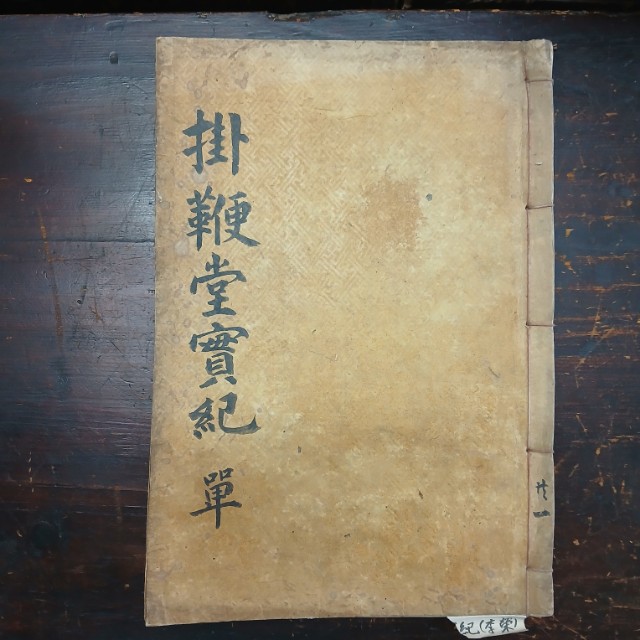 掛鞭堂實紀 單
共一
紀(李榮)